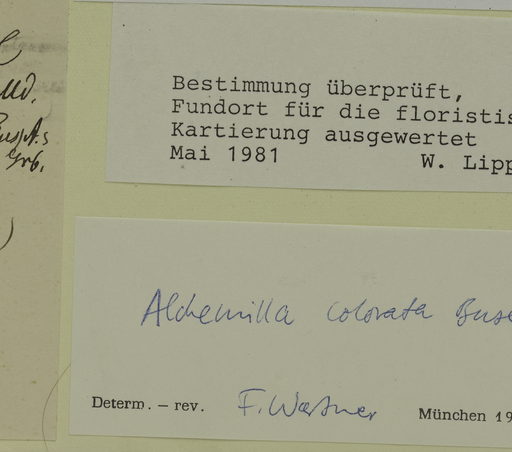 Bestimmung überprüft,
Fundort für die floristis
Kartierung ausgewertet
Mai 1981 W. Lipp
Alchemilla colorata Buse
Determ. – rev. F. Wartner München 19